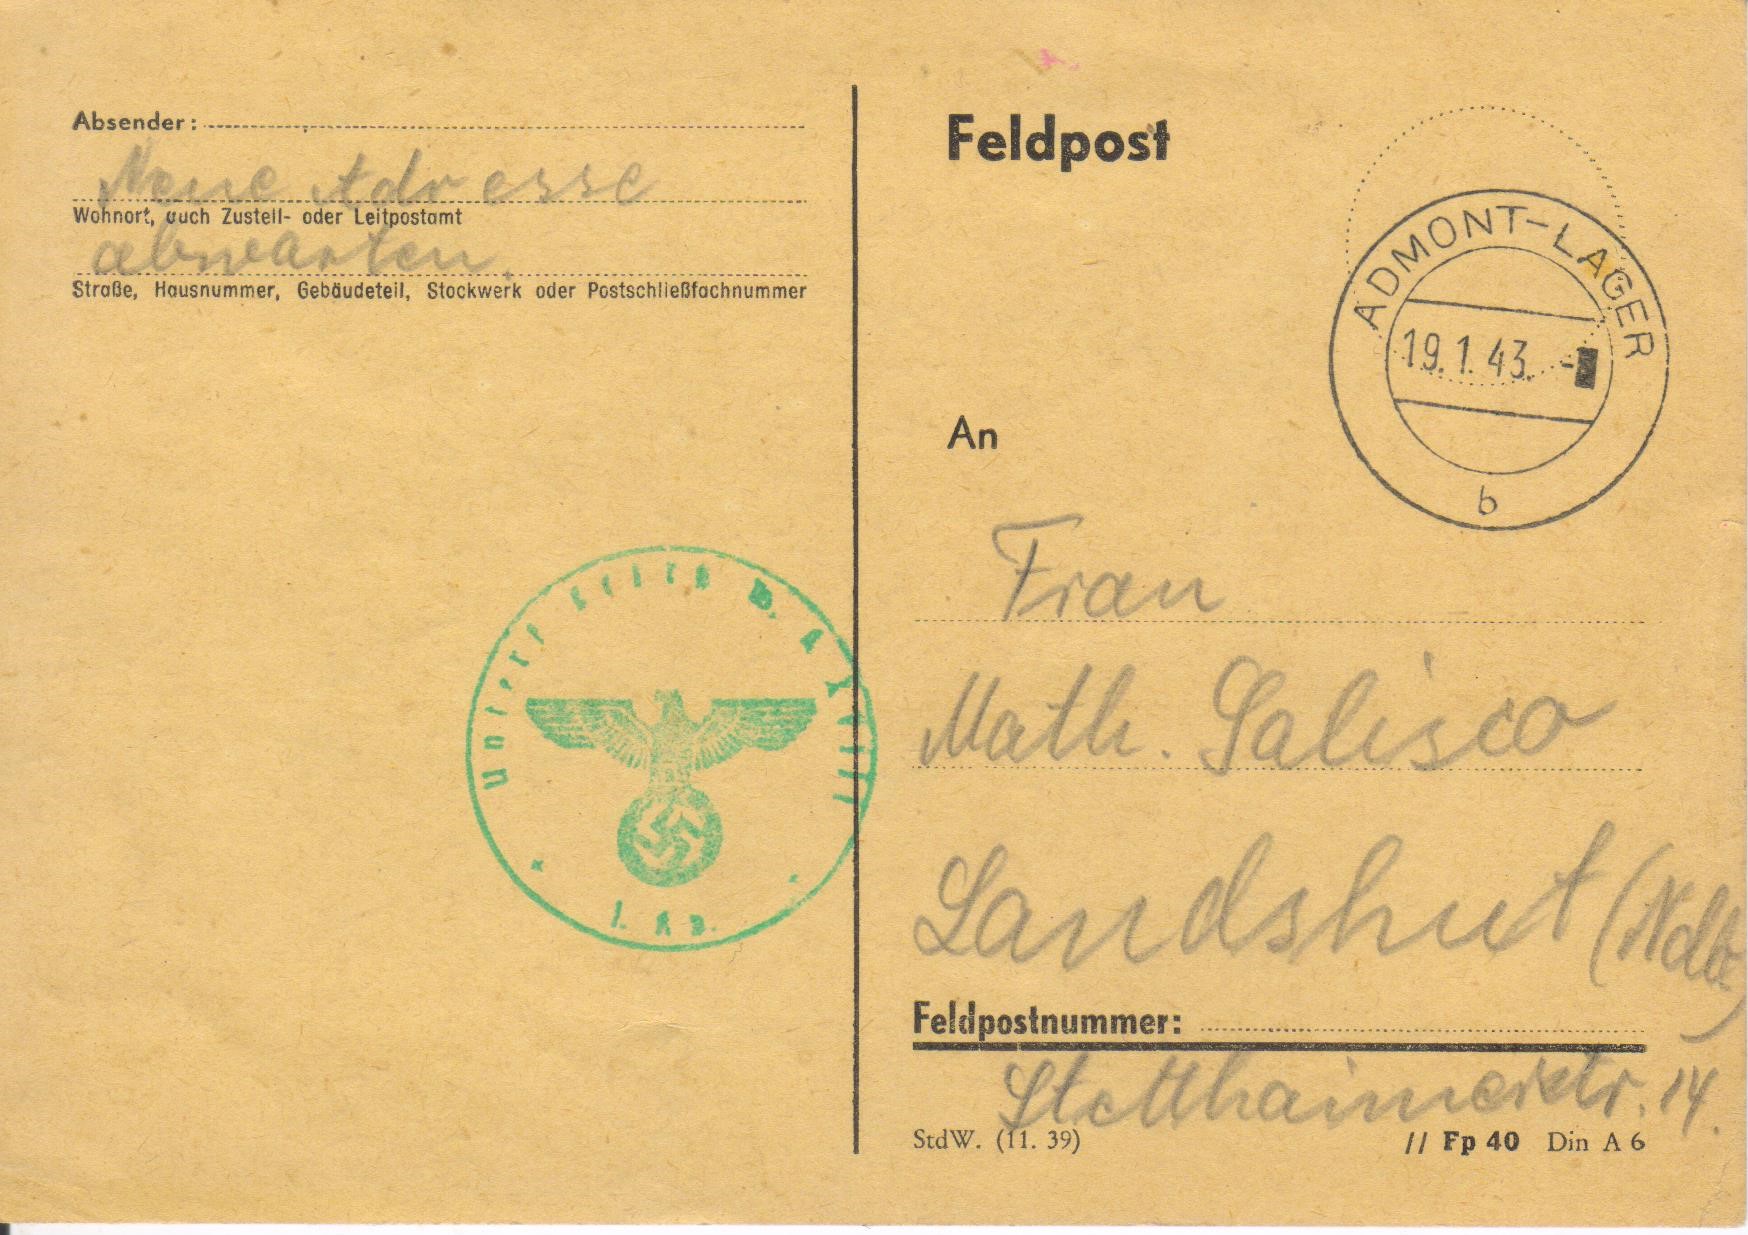 Absender:
Neue Adresse
Wohnort, auch Zustell- oder Leitpostamt
abwarten.
Straße, Hausnummer, Gebäudeteil, Stockwerk oder Postschließfachnummer
Feldpost
ADMONT-LAGER
19.1.43.-
b
An
Frau
Math. Salisco
Landshut (Ndb.)
Feldpostnummer:
Stetthaimerstr. 14.
StdW. (11. 39)
// Fp 40 Din A 6